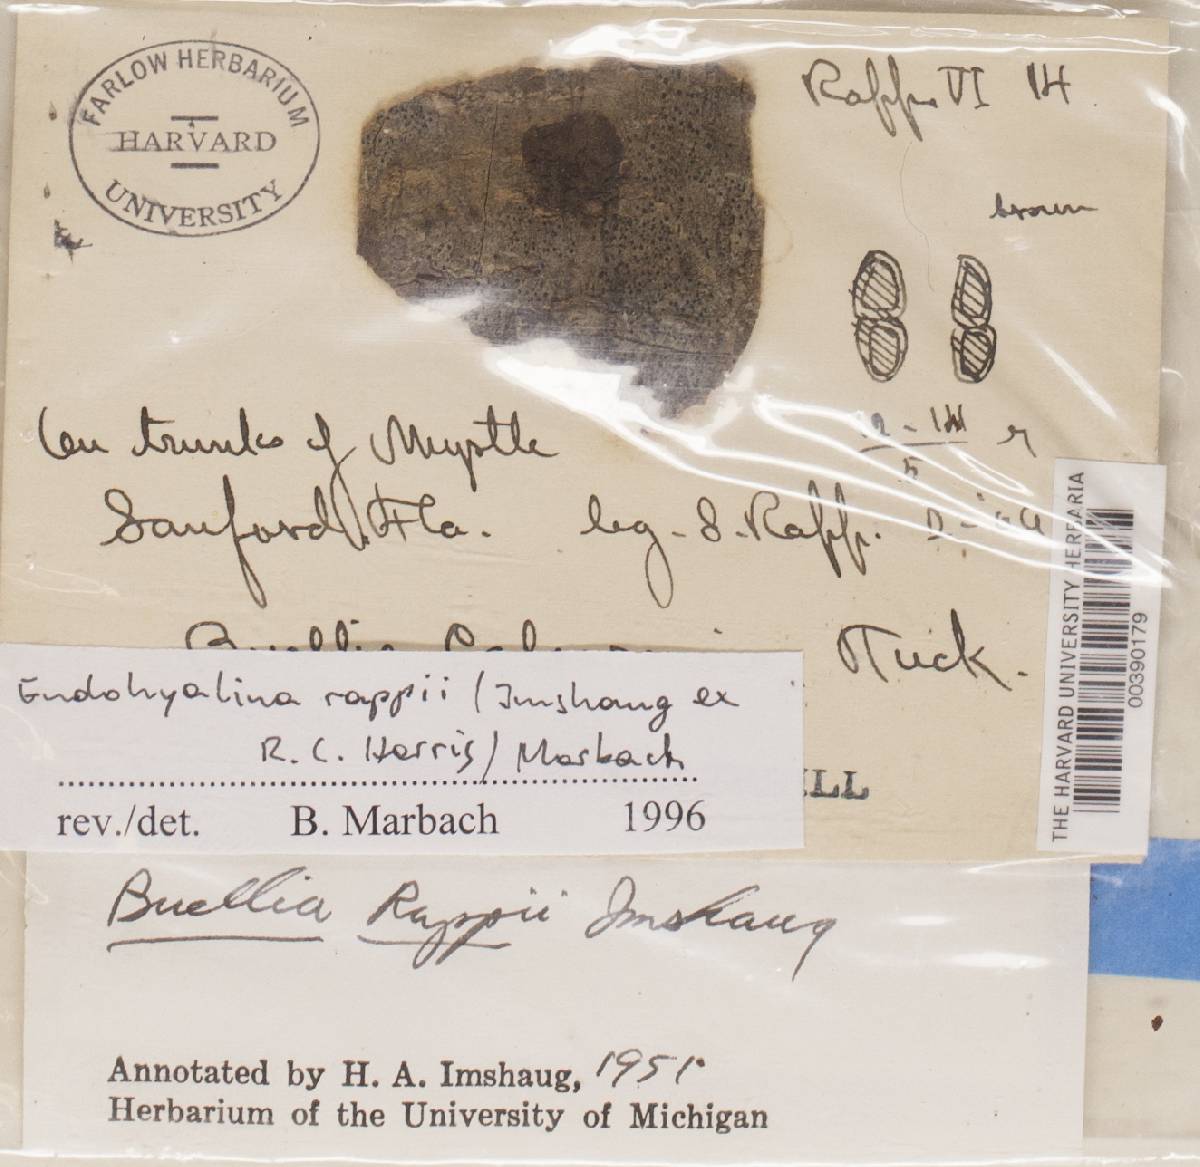 FARLOW HERBARIUM
HARVARD
UNIVERSITY
Rapp VI 14
brown
On trunks of Myrtle
Sanford, Fla. leg. S. Rapp.
Buellia Tuck.
Endohyalina rappii (Imshaug ex
R. C. Harris) Marbach
rev./det. B. Marbach 1996
LL
THE HARVARD UNIVERSITY HERBARIA
00390179
Buellia Rappii Imshaug
Annotated by H. A. Imshaug, 1951.
Herbarium of the University of Michigan